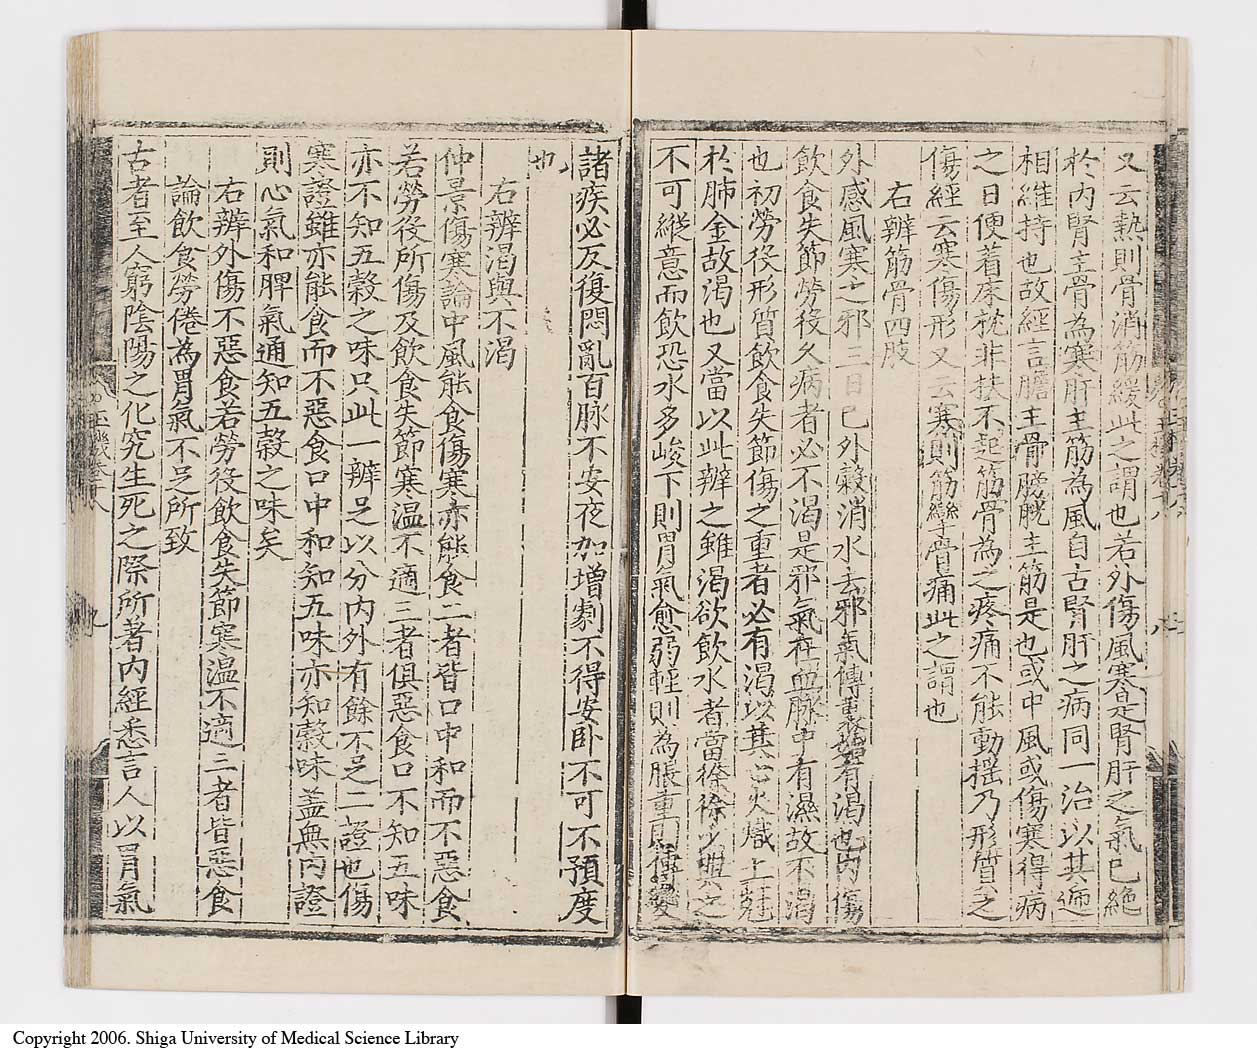 又云熱則骨消筋緩此之謂也若外傷風寒是腎肝之氣已絶
於內腎主骨為寒肝主筋為風自古腎肝之病同一治以其遞
相維持也故經言膽主骨膀胱主筋是也或中風或傷寒得病
之日便着床枕非扶不起筋骨為之疼痛不能動搖乃形質之
傷經云寒傷形又云寒則筋攣骨痛此之謂也
右辨筋骨四肢
外感風寒之邪三日已外穀消水去邪氣傳裏始有渴也內傷
飲食失節勞役久病者必不渴是邪氣在血脉中有濕故不渴
也初勞役形質飲食失節傷之重者必有渴以其心火熾上剋
於肺金故渴也又當以此辨之雖渴欲飲水者當徐徐少與之
不可縱意而飲恐水多峻下則胃氣愈弱輕則為脹重則傳變
諸疾必反復悶亂百脉不安夜加增劇不得安卧不可不預度
也
右辨渴與不渴
仲景傷寒論中風能食傷寒亦能食二者皆口中和而不惡食
若勞役所傷及飲食失節寒溫不適三者俱惡食口不知五味
亦不知五穀之味只此一辨足以分內外有餘不足二證也傷
寒證雖亦能食而不惡食口中和知五味亦知穀味盖無內證
則心氣和脾氣通知五穀之味矣
右辨外傷不惡食若勞役飲食失節寒溫不適三者皆惡食
論飲食勞倦為胃氣不足所致
古者至人窮陰陽之化究生死之際所著內經悉言人以胃氣
Copyright 2006. Shiga University of Medical Science Library